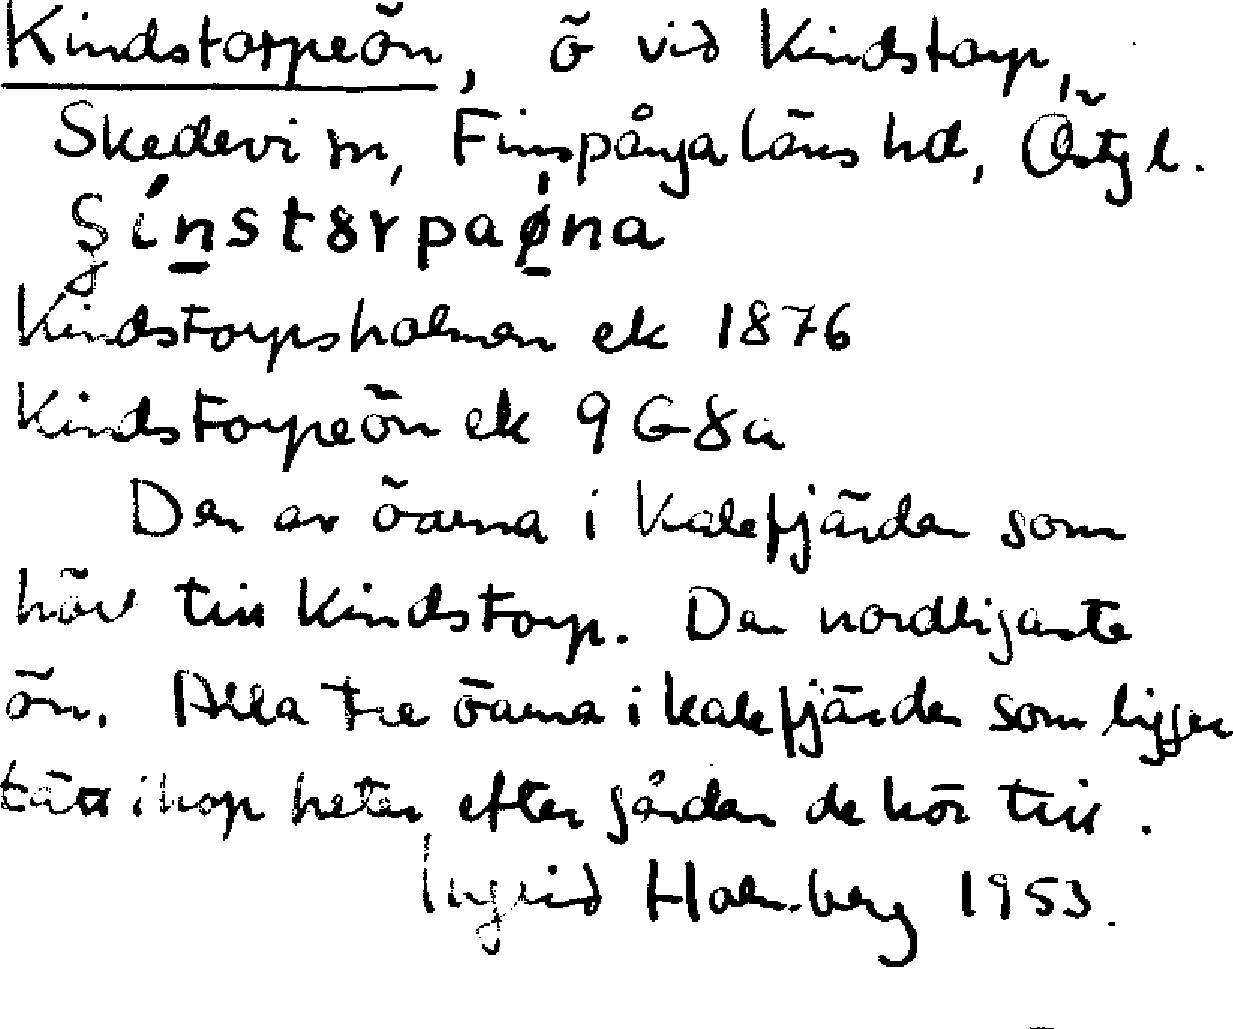 Kindstorpeön, ö vid Kindstorp,
Skedevi sn, Finspånga läns hd, Östgl.
Kindstorpsholmen ek 1876
Kindstorpeön ek 9G8a
Den av öarna i Kalvfjärden som
hör till Kindstorp. Den nordligaste
ön. Alla tre öarna i Kalvfjärden som ligger
tätt ihop heter efter gården de hör till.
Ingrid Holmberg 1953.